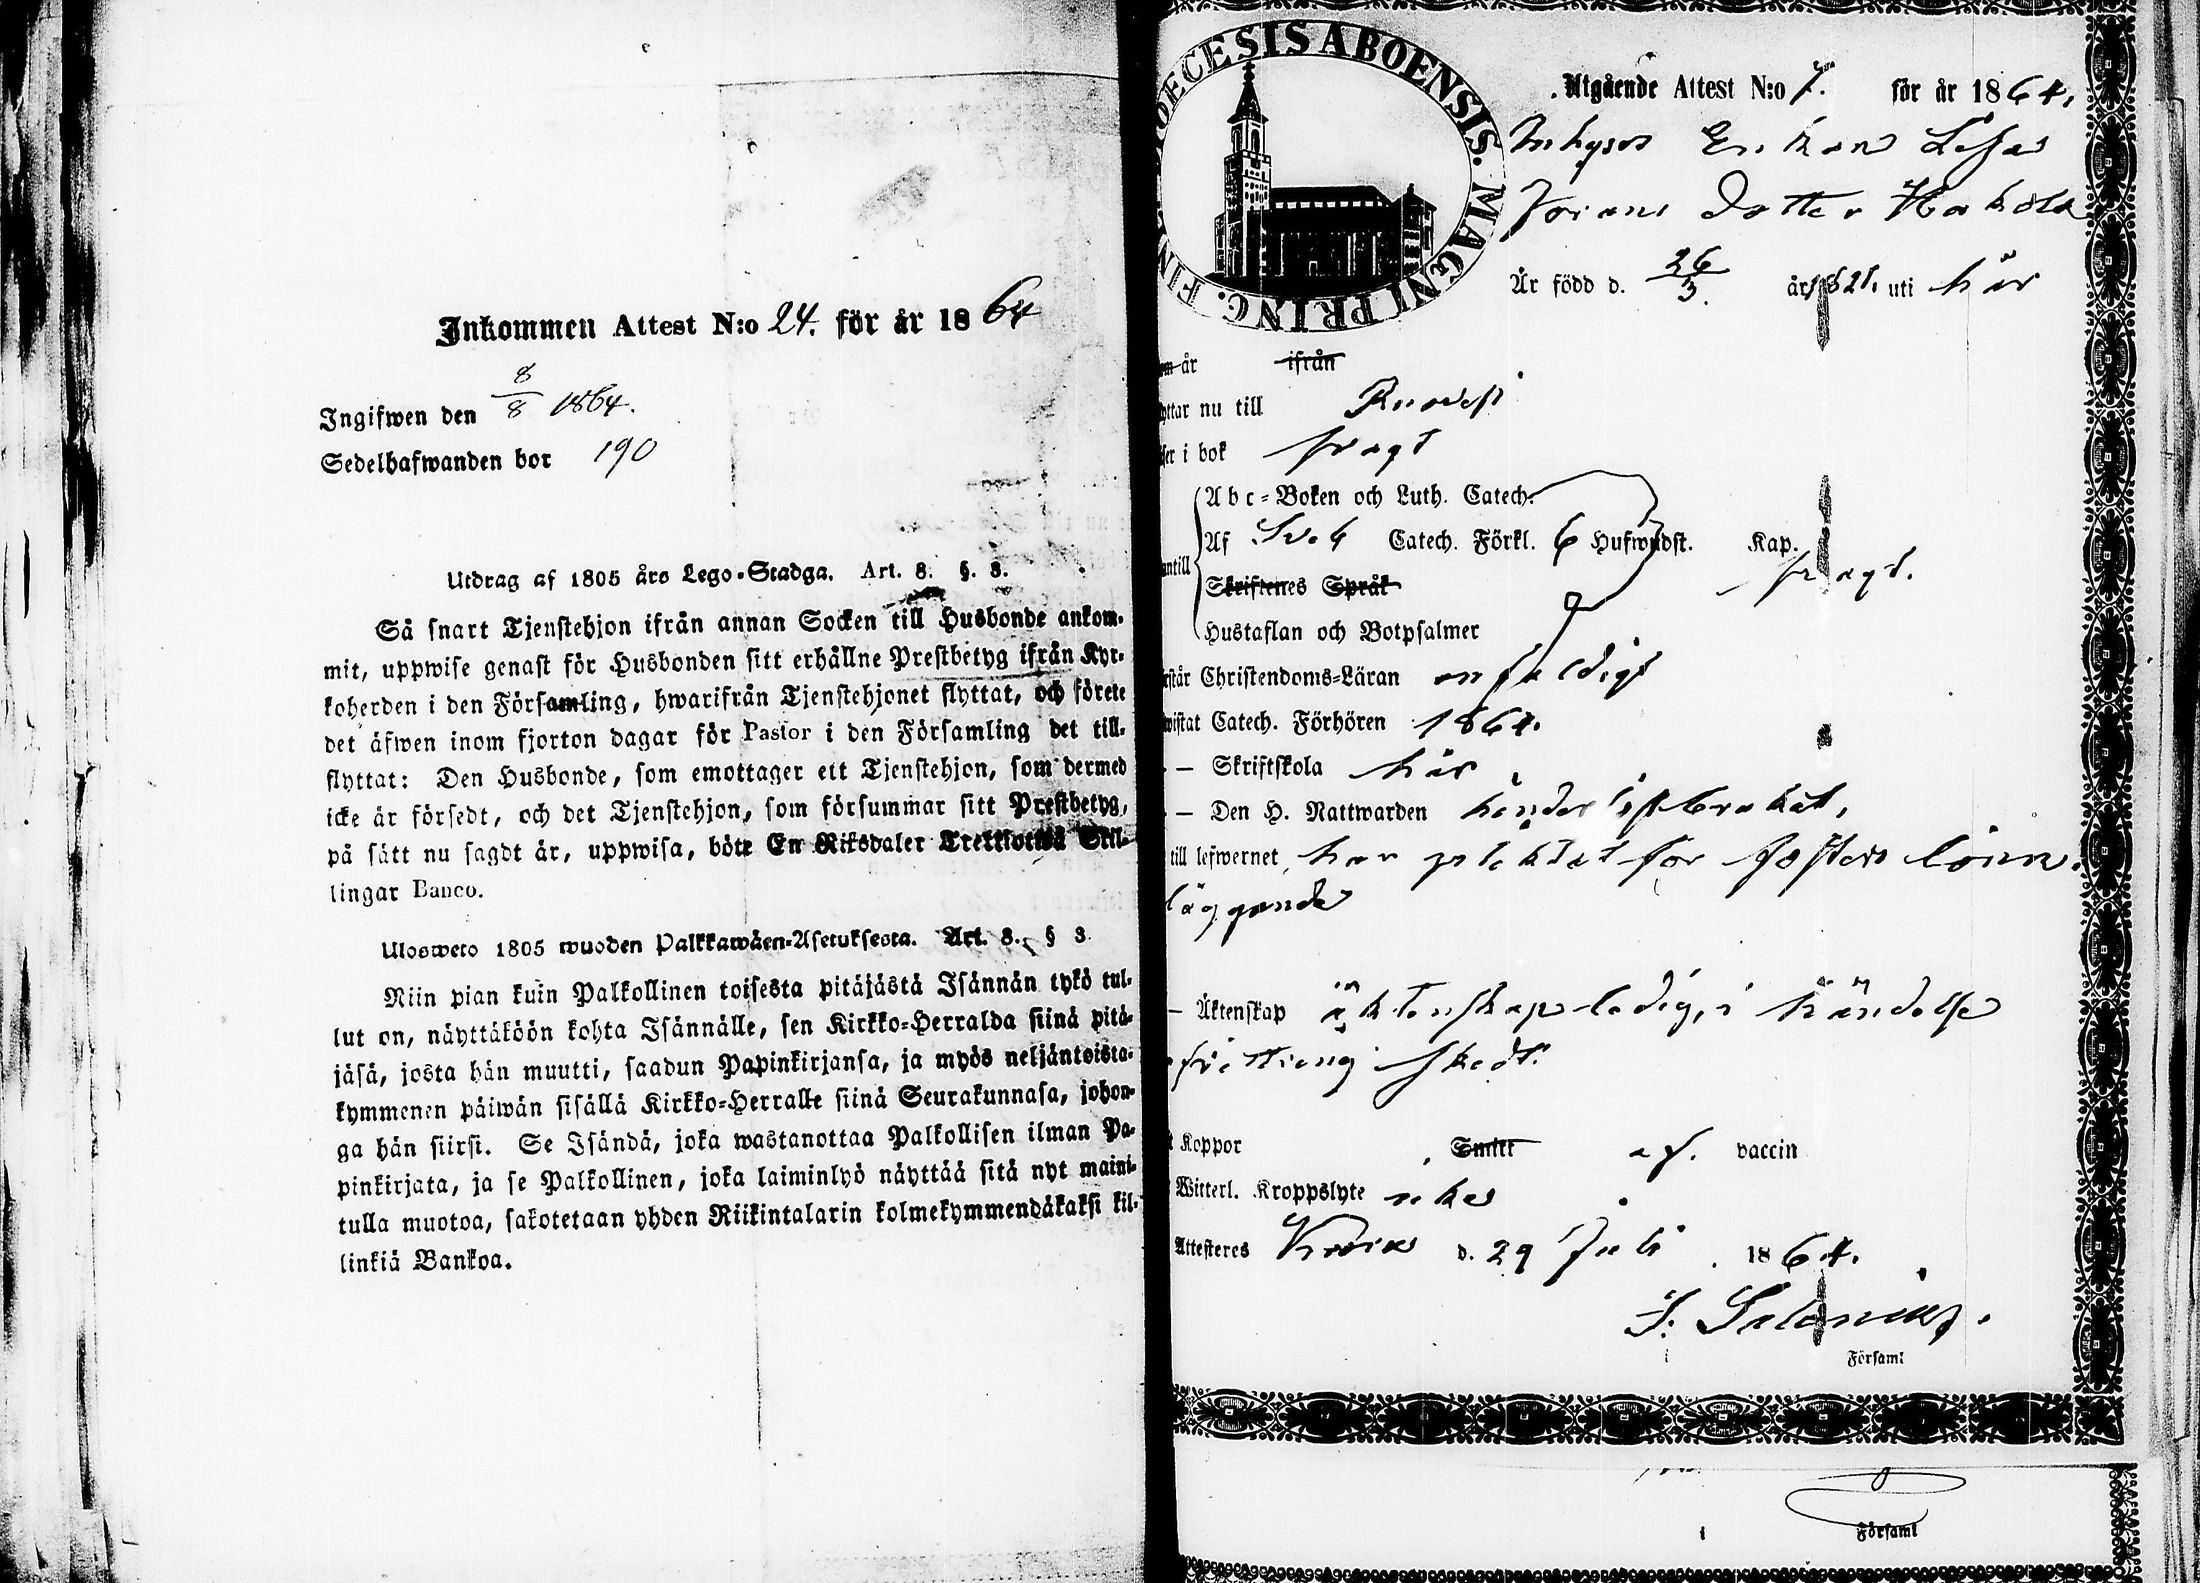 Inkommen Attest N:o 24. för år 1864
Ingifwen den 8/8 1864.
Sedelhafwanden bor 190
Utdrag af 1805 års Lego-Stadga. Art. 8. §. 3.
Så snart Tjenstehjon ifrån annan Socken till Husbonde ankom-
mit, uppwise genast för Husbonden sitt erhållne Prestbetyg ifrån Kyr-
koherden i den Församling, hwarifrån Tjenstehjonet flyttat, och förete
det äfwen inom fjorton dagar för Pastor i den Församling det till-
flyttat: Den Husbonde, som emottager ett Tjenstehjon, som dermed
icke är försedt, och det Tjenstehjon, som försummar sitt Prestbetyg,
på sätt nu sagdt är, uppwisa, böte En Riksdaler Trettiotwå Skil-
lingar Banco.
Ulosweto 1805 wuoden Palkkawäen-Asetuksesta. Art. 8. § 3.
Niin pian kuin Palkollinen toisesta pitäjästä Isännän tykö tul-
lut on, näyttäköön kohta Isännälle, sen Kirkko-Herralda siinä pitä-
jäsä, josta hän muutti, saadun Papinkirjansa, ja myös neljäntoista-
kymmenen päiwän sisällä Kirkko-Herralle siinä Seurakunnasa, johon-
ga hän siirsi. Se Isändä, joka wastanottaa Palkollisen ilman Pa-
pinkirjata, ja se Palkollinen, joka laiminlyö näyttää sitä nyt maini-
tulla muotoa, sakotetaan yhden Riikintalarin kolmekymmendäkaksi kil-
linkiä Bankoa.
DIOECESIS ABOENSIS. MAGNI PRINC. FINL.
Utgående Attest N:o 7. för år 1864.
Inhyses Enkan Lisa
Jörans dotter
Är född d. 26/3. år 1821. uti här
om år ifrån
yttar nu till Ruovesi
ser i bok swagt
Abc-Boken och Luth. Catech.
Af Sveb Catech. Förkl. 6 Hufwudst. Kap.
antill swagt.
Skriftenes Språk
Hustaflan och Botpsalmer
rstår Christendoms-Läran enfaldigt
wistat Catech. Förhören 1864.
— Skriftskola här
— Den H. Nattwarden
till lefwernet har pliktat för fosters lönn-
läggande
— Äktenskap äktenskapsledig, i händelse
skedt.
Koppor Smitt af. vaccin
Witterl. Kroppslyte icke
Attesteres d. 29 Juli 1864.
i Församl
i Församl